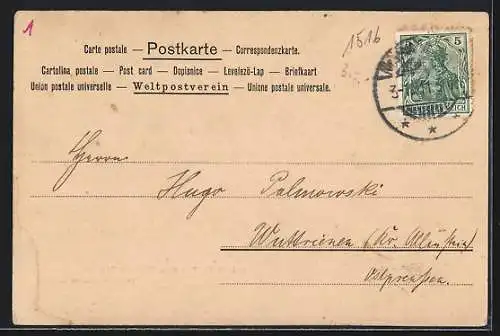 1
1516
3.-
Carte postale — Postkarte — Correspondenzkarte.
Cartolina postale — Post card — Dopisnice — Levelező-Lap — Briefkaart
Union postale universelle — Weltpostverein — Unione postale universale.
5
Herrn
Hugo Palmowski
Wuttrienen (Kr. Allenstein)
Ostpreußen.